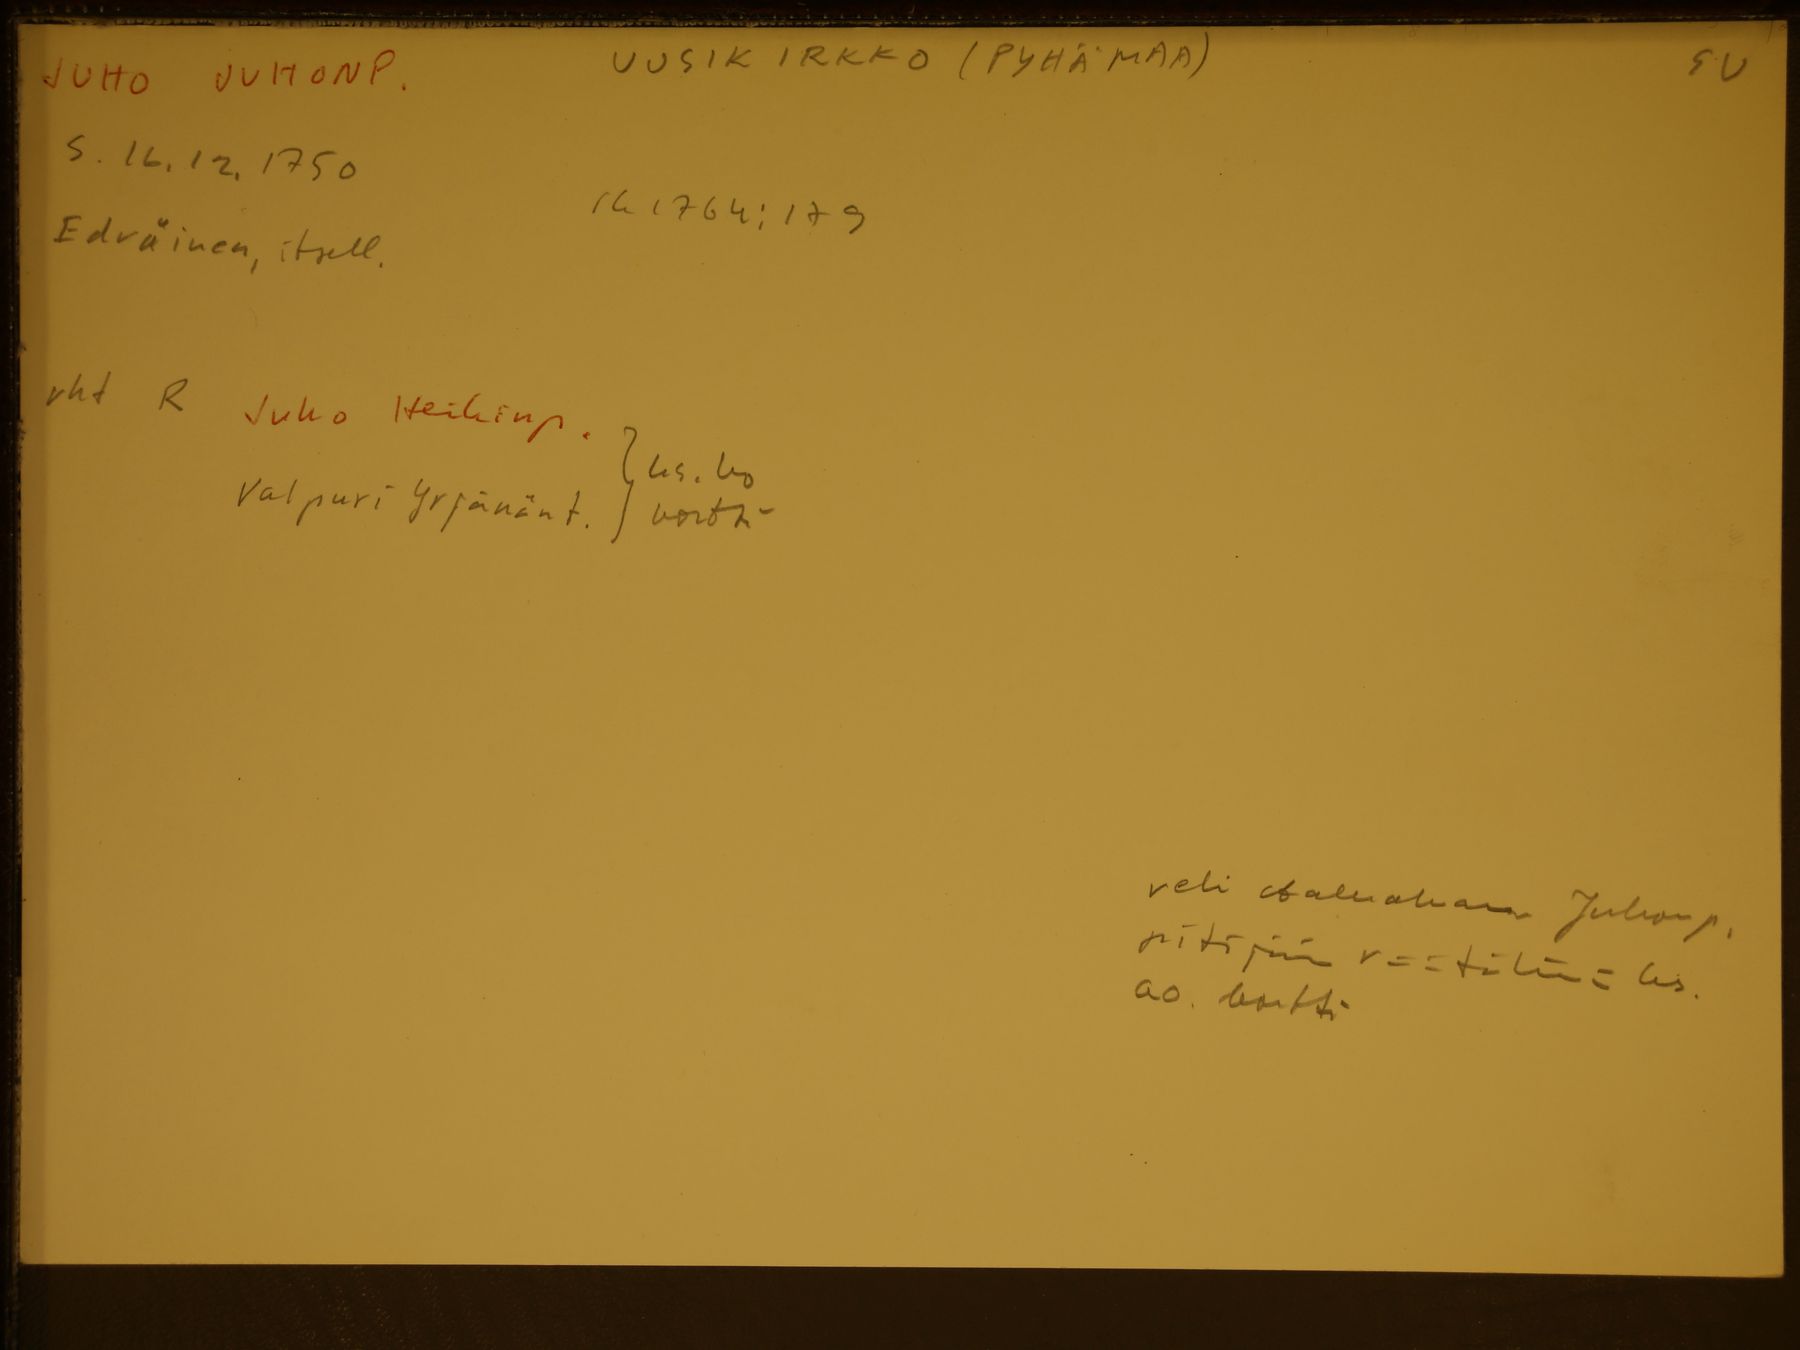 JUHO JUHONP. UUSIKIRKKO (PYHÄMAA) SU
S. 16.12.1750
rk 1764; 179
Edväinen, itsell.
vht R Juho Heikinp.
Valpuri Yrjänänt. } ks. ko kortti
veli Juhonp.
pitäjän räätälinä ks.
ao. kortti